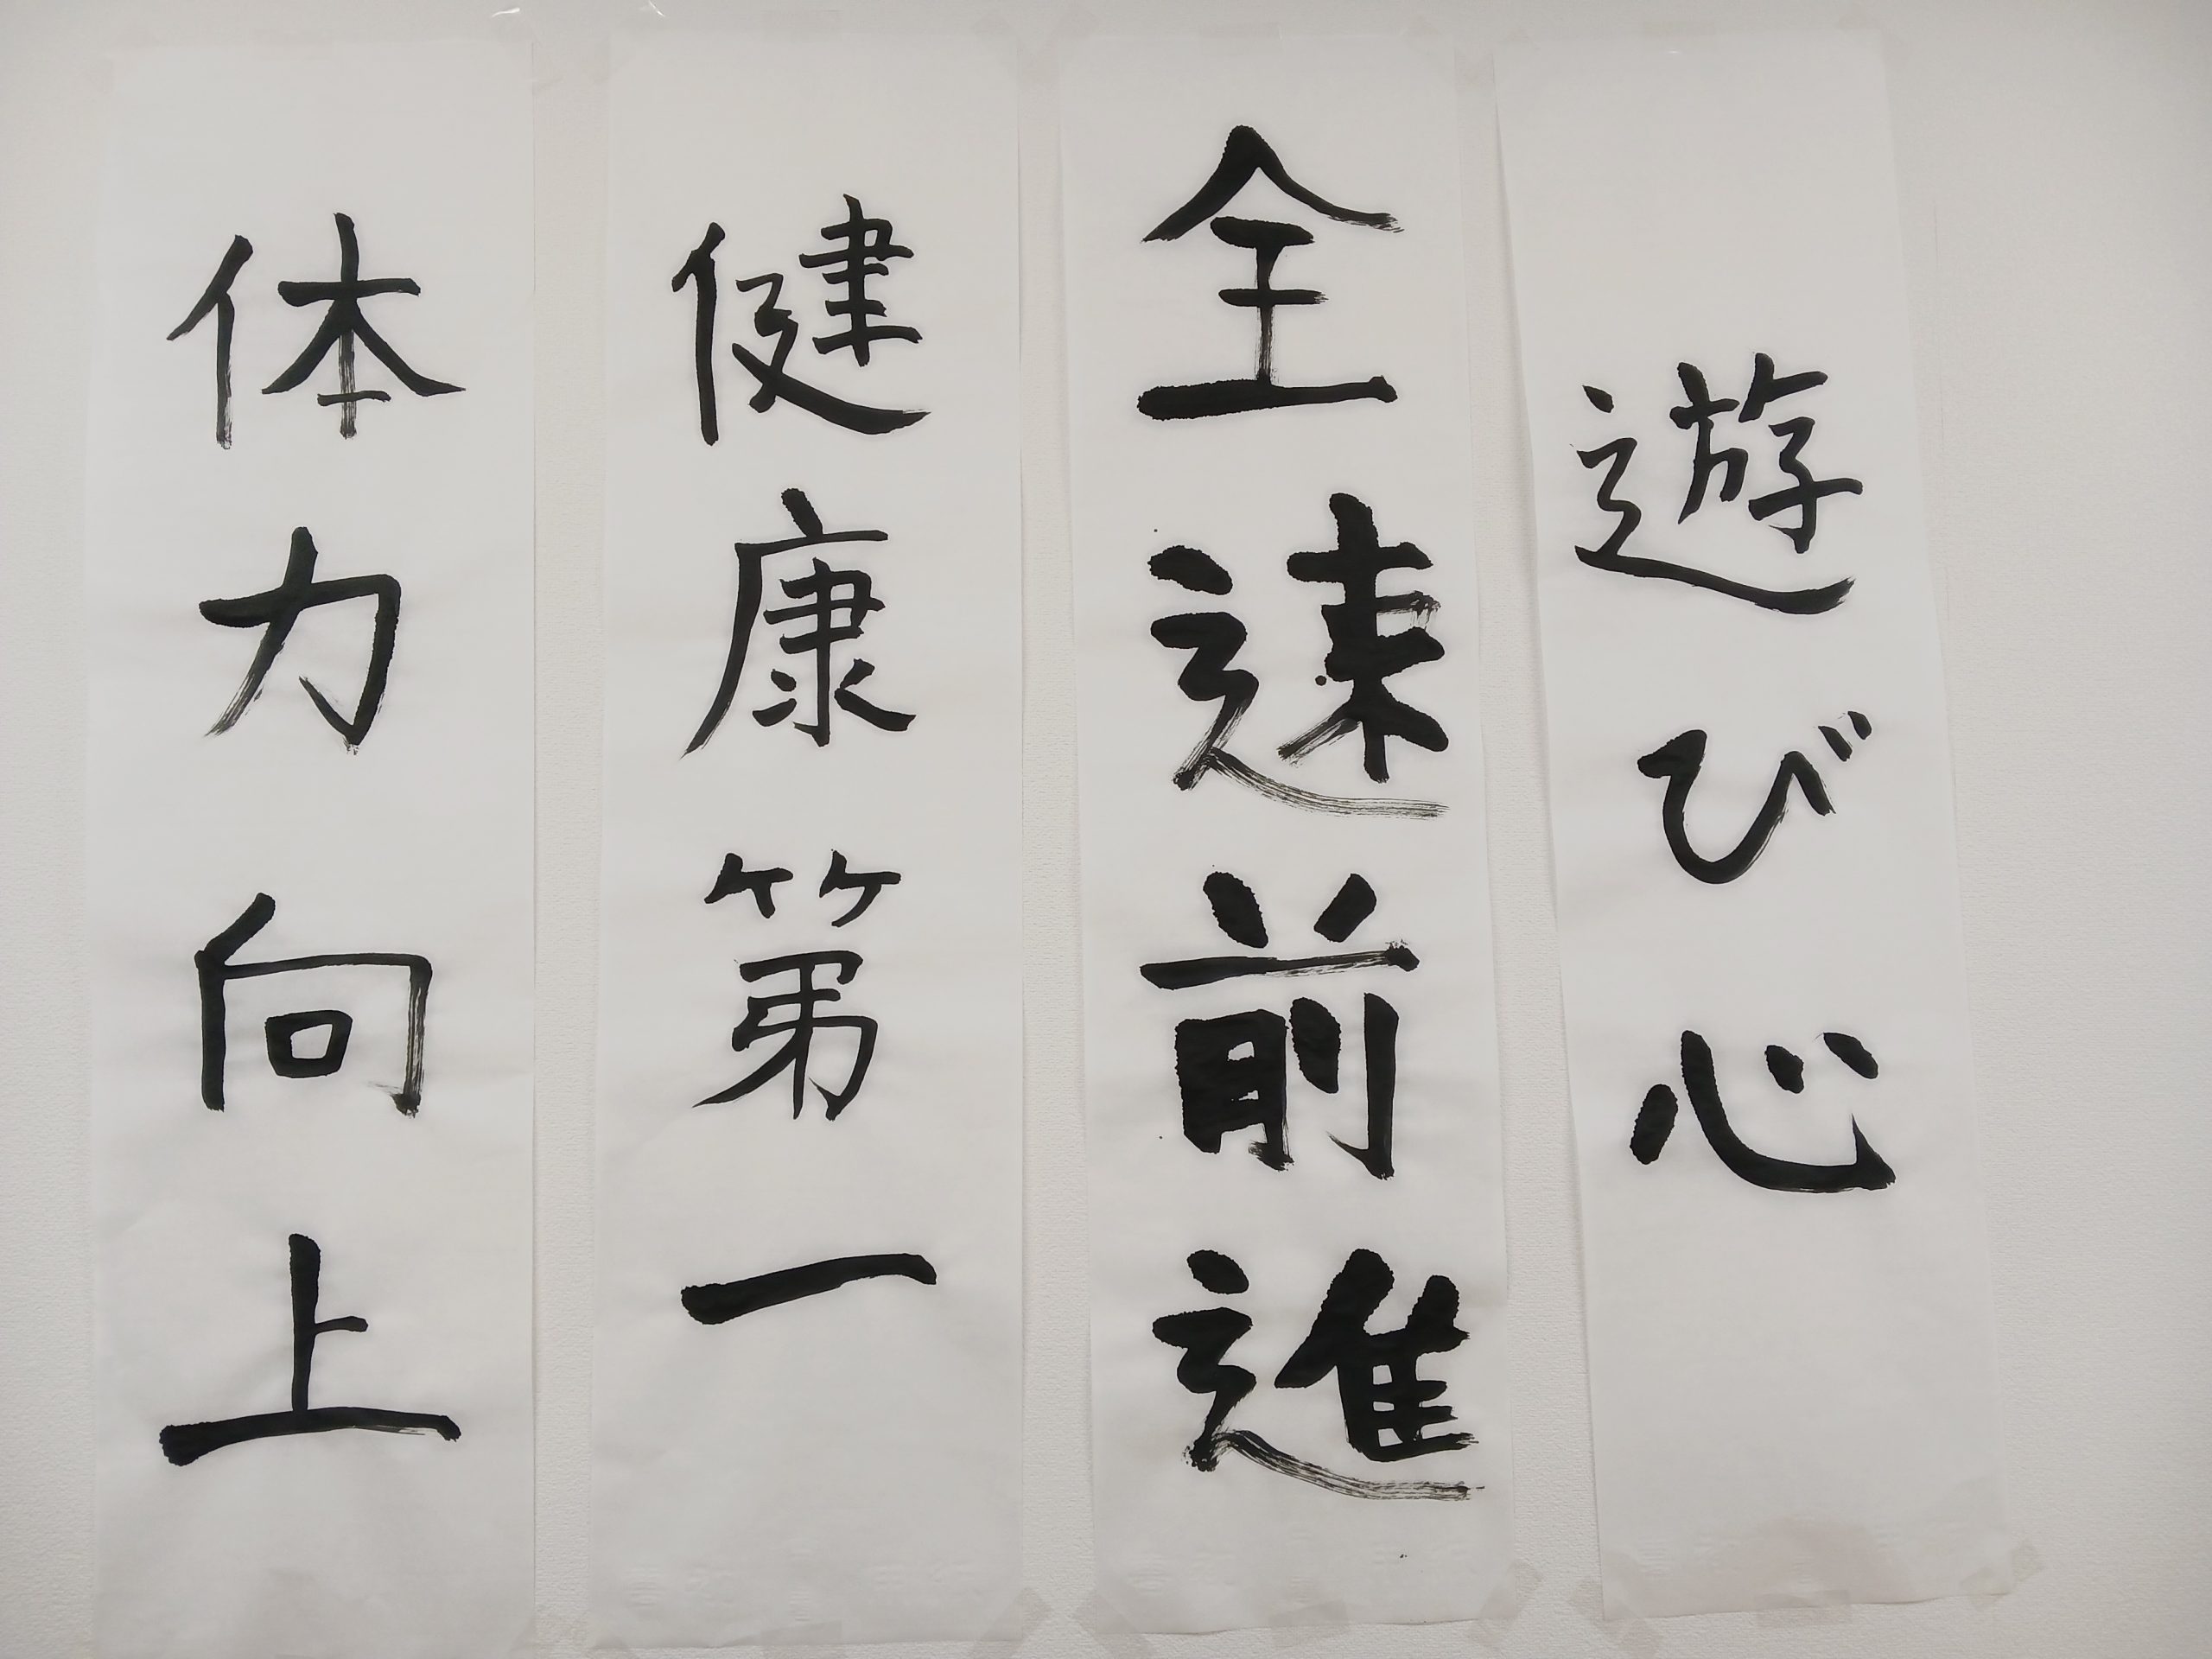 遊び心
全速前進
健康第一
体力向上